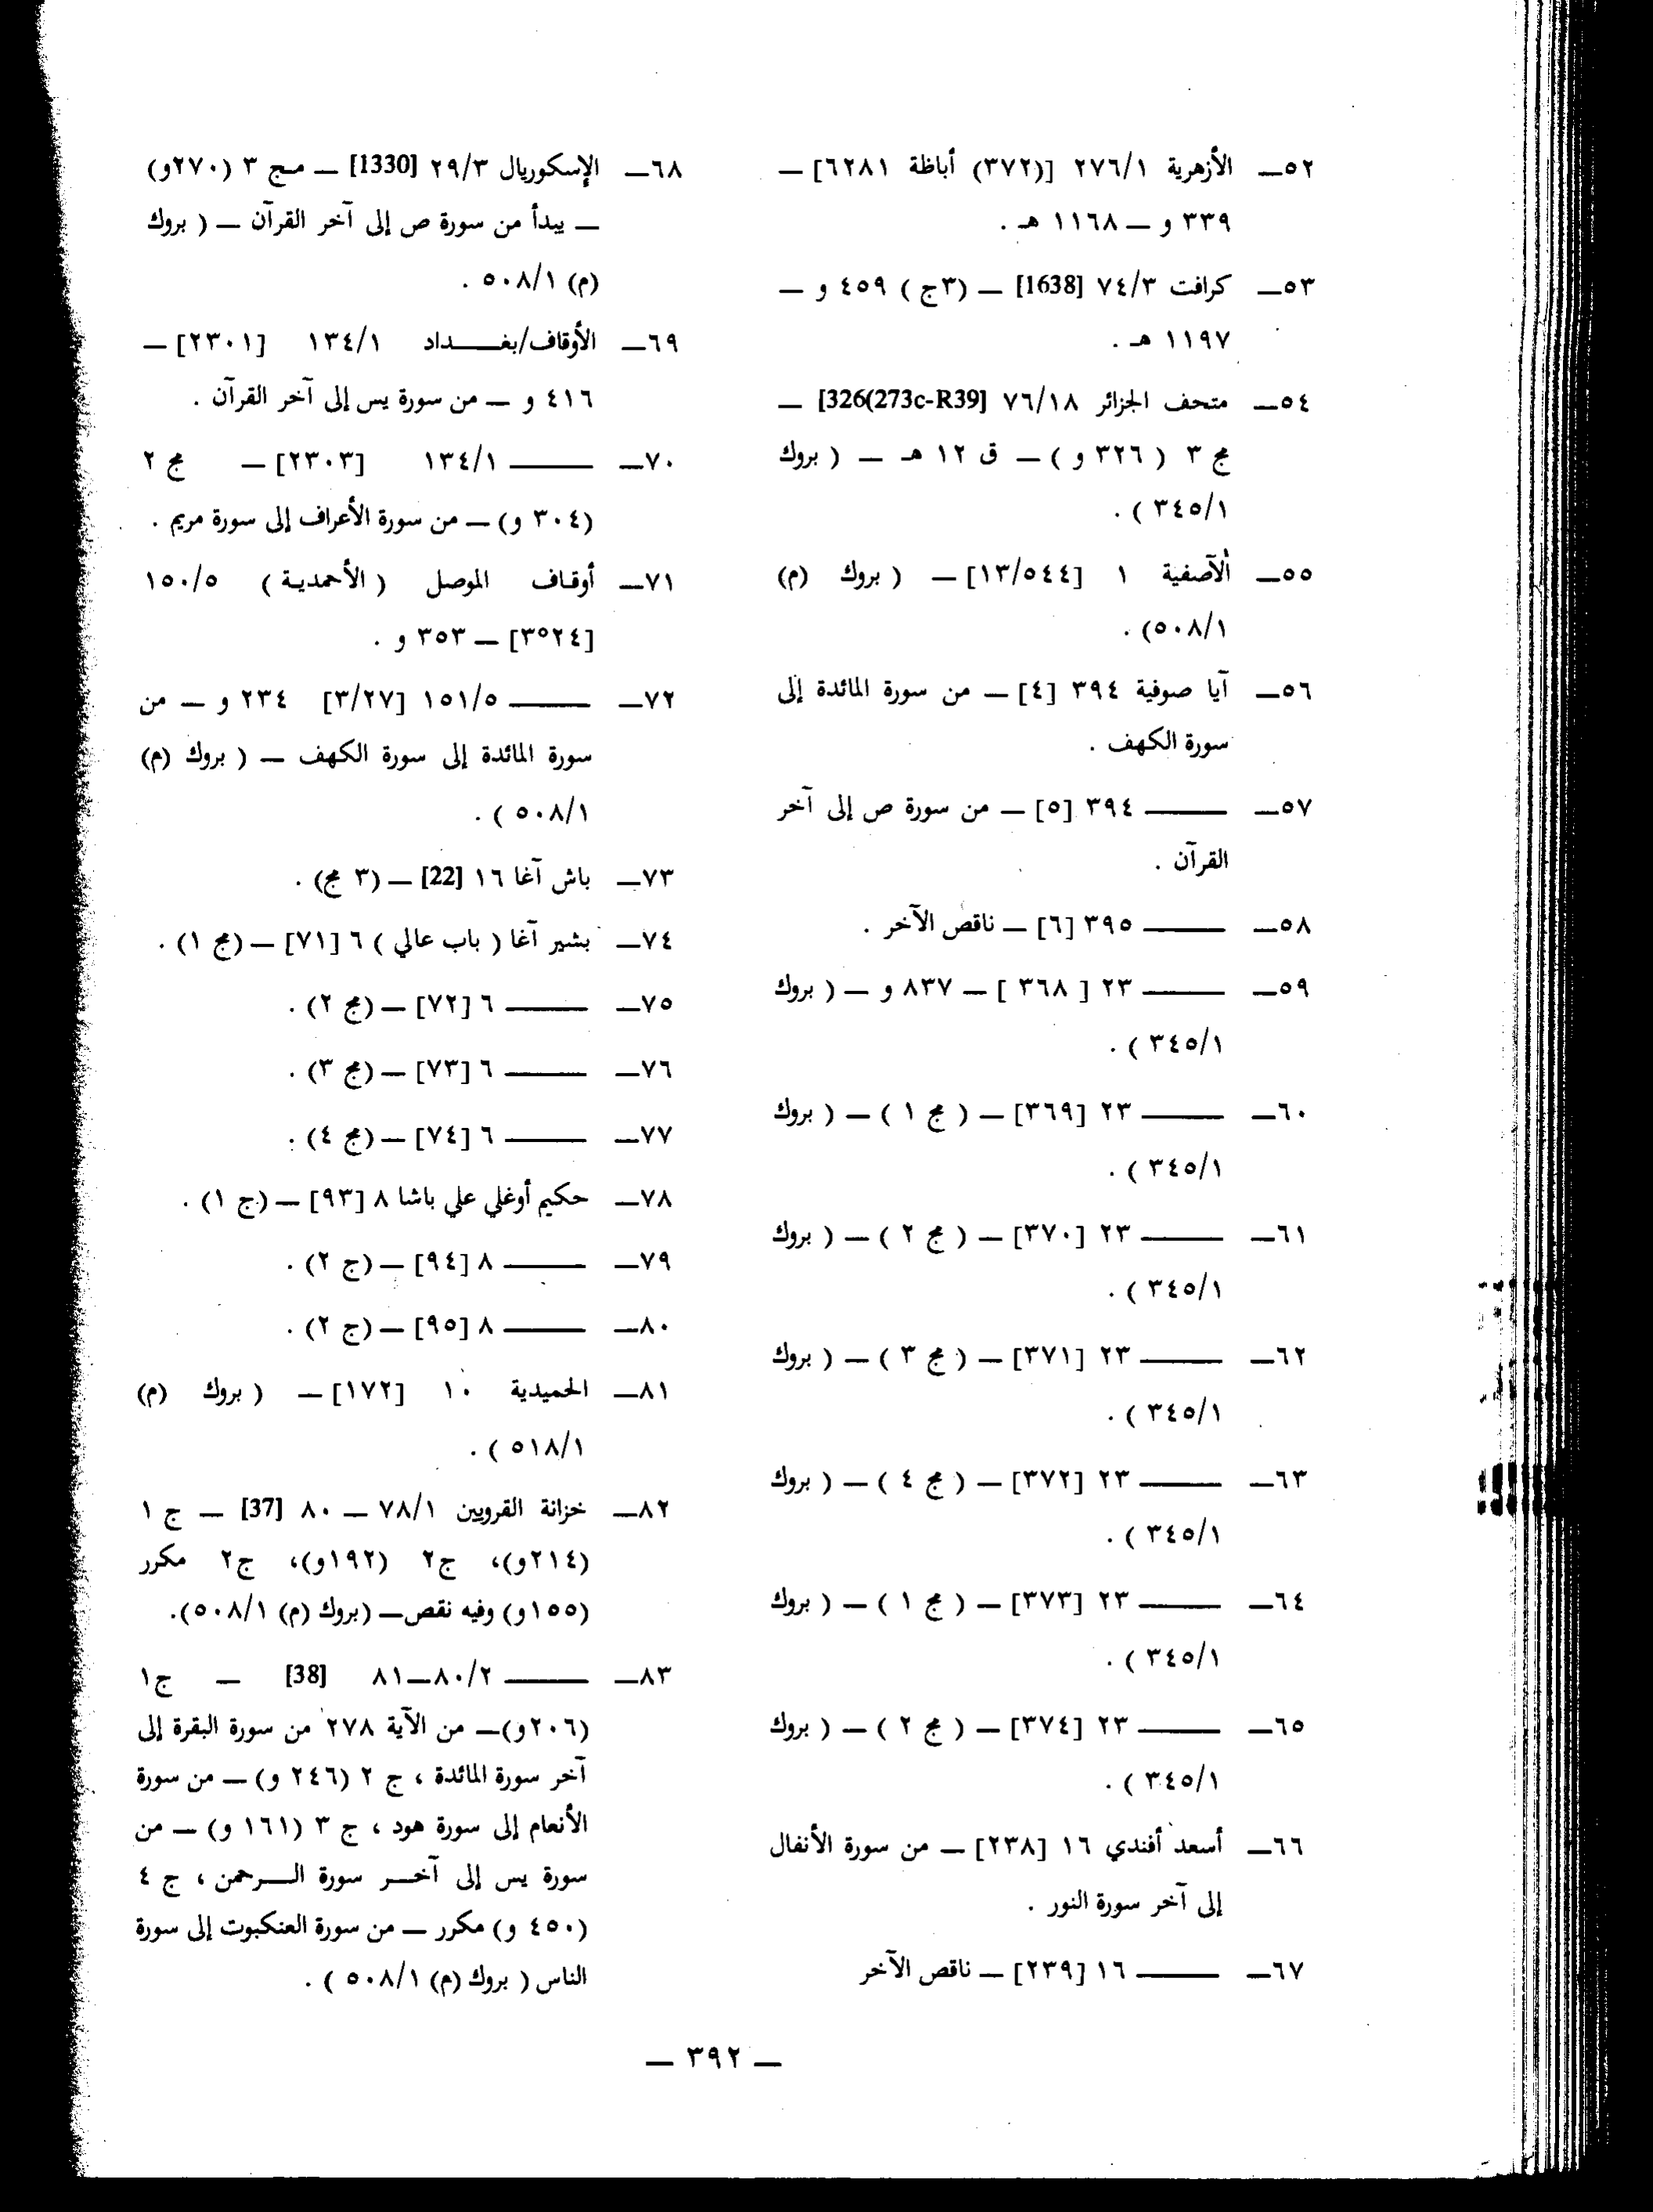 ٥٢— الأزهرية ٢٧٦/١ [(٣٧٢) أباظة ٦٢٨١] —
٣٣٩ و — ١١٦٨ هـ .
٥٣— كرافت ٧٤/٣ [1638] — (٣ج ) ٤٥٩ و —
١١٩٧ هـ .
٥٤— متحف الجزائر ٧٦/١٨ [326(273c-R39] —
مج ٣ ( ٣٢٦ و ) — ق ١٢ هـ — ( بروك
٣٤٥/١ ) .
٥٥— الآصفية ١ [١٣/٥٤٤] — ( بروك (م)
٥٠٨/١) .
٥٦— آيا صوفية ٣٩٤ [٤] — من سورة المائدة إلى
سورة الكهف .
٥٧— ——— ٣٩٤ [٥] — من سورة ص إلى آخر
القرآن .
٥٨— ——— ٣٩٥ [٦] — ناقص الآخر .
٥٩— ——— ٢٣ [ ٣٦٨ ] — ٨٣٧ و — ( بروك
٣٤٥/١ ) .
٦٠— ——— ٢٣ [٣٦٩] — ( مج ١ ) — ( بروك
٣٤٥/١ ) .
٦١— ——— ٢٣ [٣٧٠] — ( مج ٢ ) — ( بروك
٣٤٥/١ ) .
٦٢— ——— ٢٣ [٣٧١] — ( مج ٣ ) — ( بروك
٣٤٥/١ ) .
٦٣— ——— ٢٣ [٣٧٢] — ( مج ٤ ) — ( بروك
٣٤٥/١ ) .
٦٤— ——— ٢٣ [٣٧٣] — ( مج ١ ) — ( بروك
٣٤٥/١ ) .
٦٥— ——— ٢٣ [٣٧٤] — ( مج ٢ ) — ( بروك
٣٤٥/١ ) .
٦٦— أسعد أفندي ١٦ [٢٣٨] — من سورة الأنفال
إلى آخر سورة النور .
٦٧— ——— ١٦ [٢٣٩] — ناقص الآخر
٦٨— الإسكوريال ٢٩/٣ [1330] — مج ٣ (٢٧٠و)
— يبدأ من سورة ص إلى آخر القرآن — ( بروك
(م) ٥٠٨/١ .
٦٩— الأوقاف/بغـــداد ١٣٤/١ [٢٣٠١] —
٤١٦ و — من سورة يس إلى آخر القرآن .
٧٠— ——— ١٣٤/١ [٢٣٠٣] — مج ٢
(٣٠٤ و) — من سورة الأعراف إلى سورة مريم .
٧١— أوقاف الموصل ( الأحمدية ) ١٥٠/٥
[٣°٢٤] — ٣٥٣ و .
٧٢— ——— ١٥١/٥ [٣/٢٧] ٢٣٤ و — من
سورة المائدة إلى سورة الكهف — ( بروك (م)
٥٠٨/١ ) .
٧٣— باش آغا ١٦ [22] — (٣ مج) .
٧٤— بشير آغا ( باب عالي ) ٦ [٧١] — (مج ١) .
٧٥— ——— ٦ [٧٢] — (مج ٢) .
٧٦— ——— ٦ [٧٣] — (مج ٣) .
٧٧— ——— ٦ [٧٤] — (مج ٤) .
٧٨— حكيم أوغلي علي باشا ٨ [٩٣] — (ج ١) .
٧٩— ——— ٨ [٩٤] — (ج ٢) .
٨٠— ——— ٨ [٩٥] — (ج ٢) .
٨١— الحميدية ١٠ [١٧٢] — ( بروك (م)
٥١٨/١ ) .
٨٢— خزانة القرويين ٧٨/١ — ٨٠ [37] — ج ١
(٢١٤و)، ج٢ (١٩٢و)، ج٢ مكرر
(١٥٥و) وفيه نقص— (بروك (م) ٥٠٨/١).
٨٣— ——— ٨٠/٢—٨١ [38] — ج١
(٢٠٦و)— من الآية ٢٧٨ من سورة البقرة إلى
آخر سورة المائدة ، ج ٢ (٢٤٦ و) — من سورة
الأنعام إلى سورة هود ، ج ٣ (١٦١ و) — من
سورة يس إلى آخـــر سورة الـــرحمن ، ج ٤
(٤٥٠ و) مكرر — من سورة العنكبوت إلى سورة
الناس ( بروك (م) ٥٠٨/١ ) .
— ٣٩٢ —